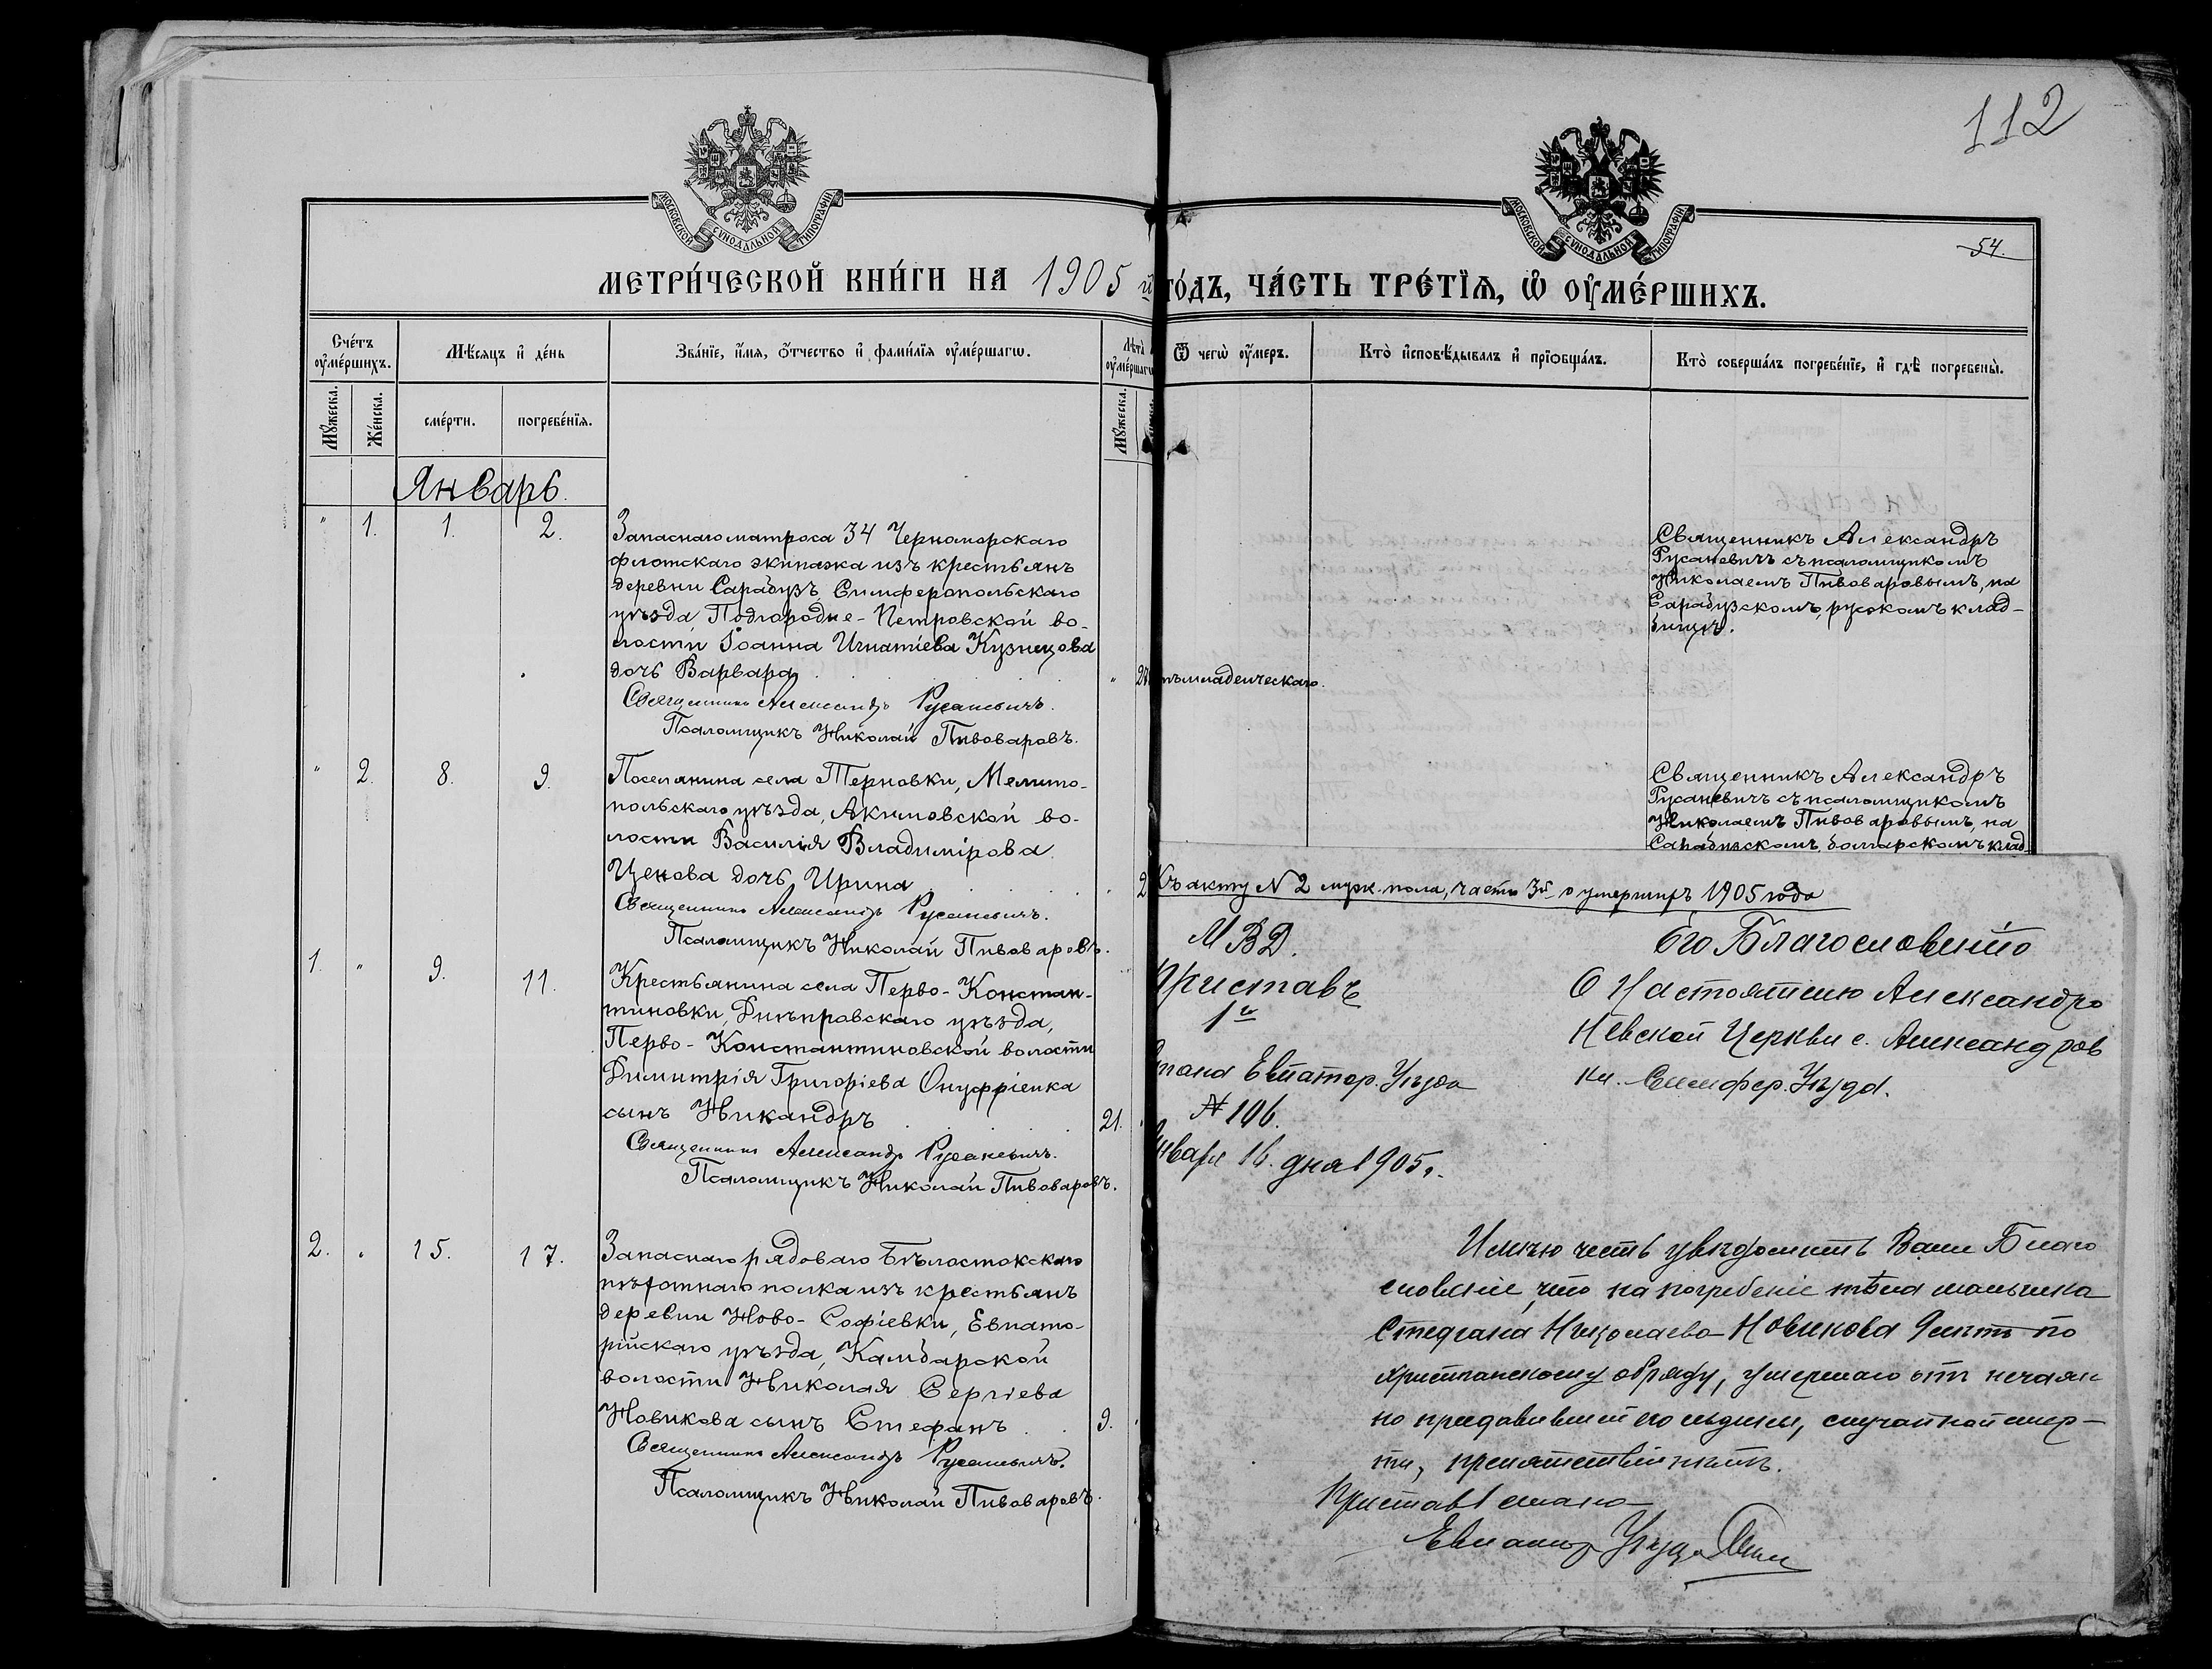 112
МОСКОВСКОЙ СУНОДАЛЬНОЙ ТИПОГРАФІИ
МОСКОВСКОЙ СУНОДАЛЬНОЙ ТИПОГРАФІИ
54.
МЕТРИ́ЧЕСКОЙ КНИ́ГИ НА 1905 й го́дъ, ЧА́СТЬ ТРЕ́ТІЯ, Ѡ ОУМЕ́РШИХЪ.
Сче́тъ оуме́ршихъ.
Мѣсяцъ и де́нь
Зва́ніе, и́мя, о́тчество и фами́лія оуме́ршагѡ.
Лѣта оуме́ршагѡ
Ѿ чегѡ̀ оу́меръ.
Кто̀ исповѣ́дывалъ и пріѡбща́лъ.
Кто̀ соверша́лъ погребе́ніе, и гдѣ̀ погребены̀.
Му́жеска.
Же́нска.
сме́рти.
погребе́нія.
Му́жеска.
Январь.
" 1. 1. 2.
Запаснаго матроса 34 Черноморскаго
флотскаго экипажа изъ крестьянъ
деревни Сарабузъ, Симферопольскаго
уѣзда, Подгородне-Петровской во-
лости Іоанна Игнатіева Кузнецова
дочь Варвара
Священникъ Александръ Русаневичъ.
Псаломщикъ Николай Пивоваровъ.
младенческаго.
Священникъ Александръ
Русаневичъ съ псаломщикомъ
Николаемъ Пивоваровымъ, на
Сарабузскомъ, русскомъ клад-
бищѣ.
" 2. 8. 9.
Поселянина села Терновки, Мелито-
польскаго уѣзда, Акимовской во-
лости Василія Владимірова
Ценова дочь Ирина
Священникъ Александръ Русаневичъ.
Псаломщикъ Николай Пивоваровъ.
2
Священникъ Александръ
Русаневичъ съ псаломщикомъ
Николаемъ Пивоваровымъ, на
Сарабузскомъ, болгарскомъ клад-
1. " 9. 11.
Крестьянина села Перво-Констан-
тиновки, Днѣпровскаго уѣзда,
Перво-Константиновской волости
Димитрія Григоріева Онуфріенка
сынъ Никандръ
21.
Священникъ Александръ Русаневичъ.
Псаломщикъ Николай Пивоваровъ.
2. " 15. 17.
Запаснаго рядоваго Бѣлостокскаго
пѣхотнаго полка изъ крестьянъ
деревни Ново-Софіевки, Евпато-
рійскаго уѣзда, Камбарской
волости Николая Сергіева
Новикова сынъ Стефанъ
9.
Священникъ Александръ Русаневичъ.
Псаломщикъ Николай Пивоваровъ.
Къ акту N 2 муж. пола, часть 3й о умершихъ 1905 года
МВД.
Приставъ
1го
стана Евпатор. Уѣзда
N 106.
Января 16. дня 1905 г.
Его Благословенію
О Настоятелю Александро
Невской Церкви с. Александров
ки. Симфер. Уѣзда.
Имѣю честь увѣдомить Ваше Благо
словеніе, что на погребеніе тѣла мальчика
Стефана Николаева Новикова 9 лѣтъ по
христіанскому обряду, умершаго отъ нечаян
но придавившей его льдины, случайной смер-
ти, препятствій нѣтъ.
Приставъ 1 стана
Евпатор. Уѣзда